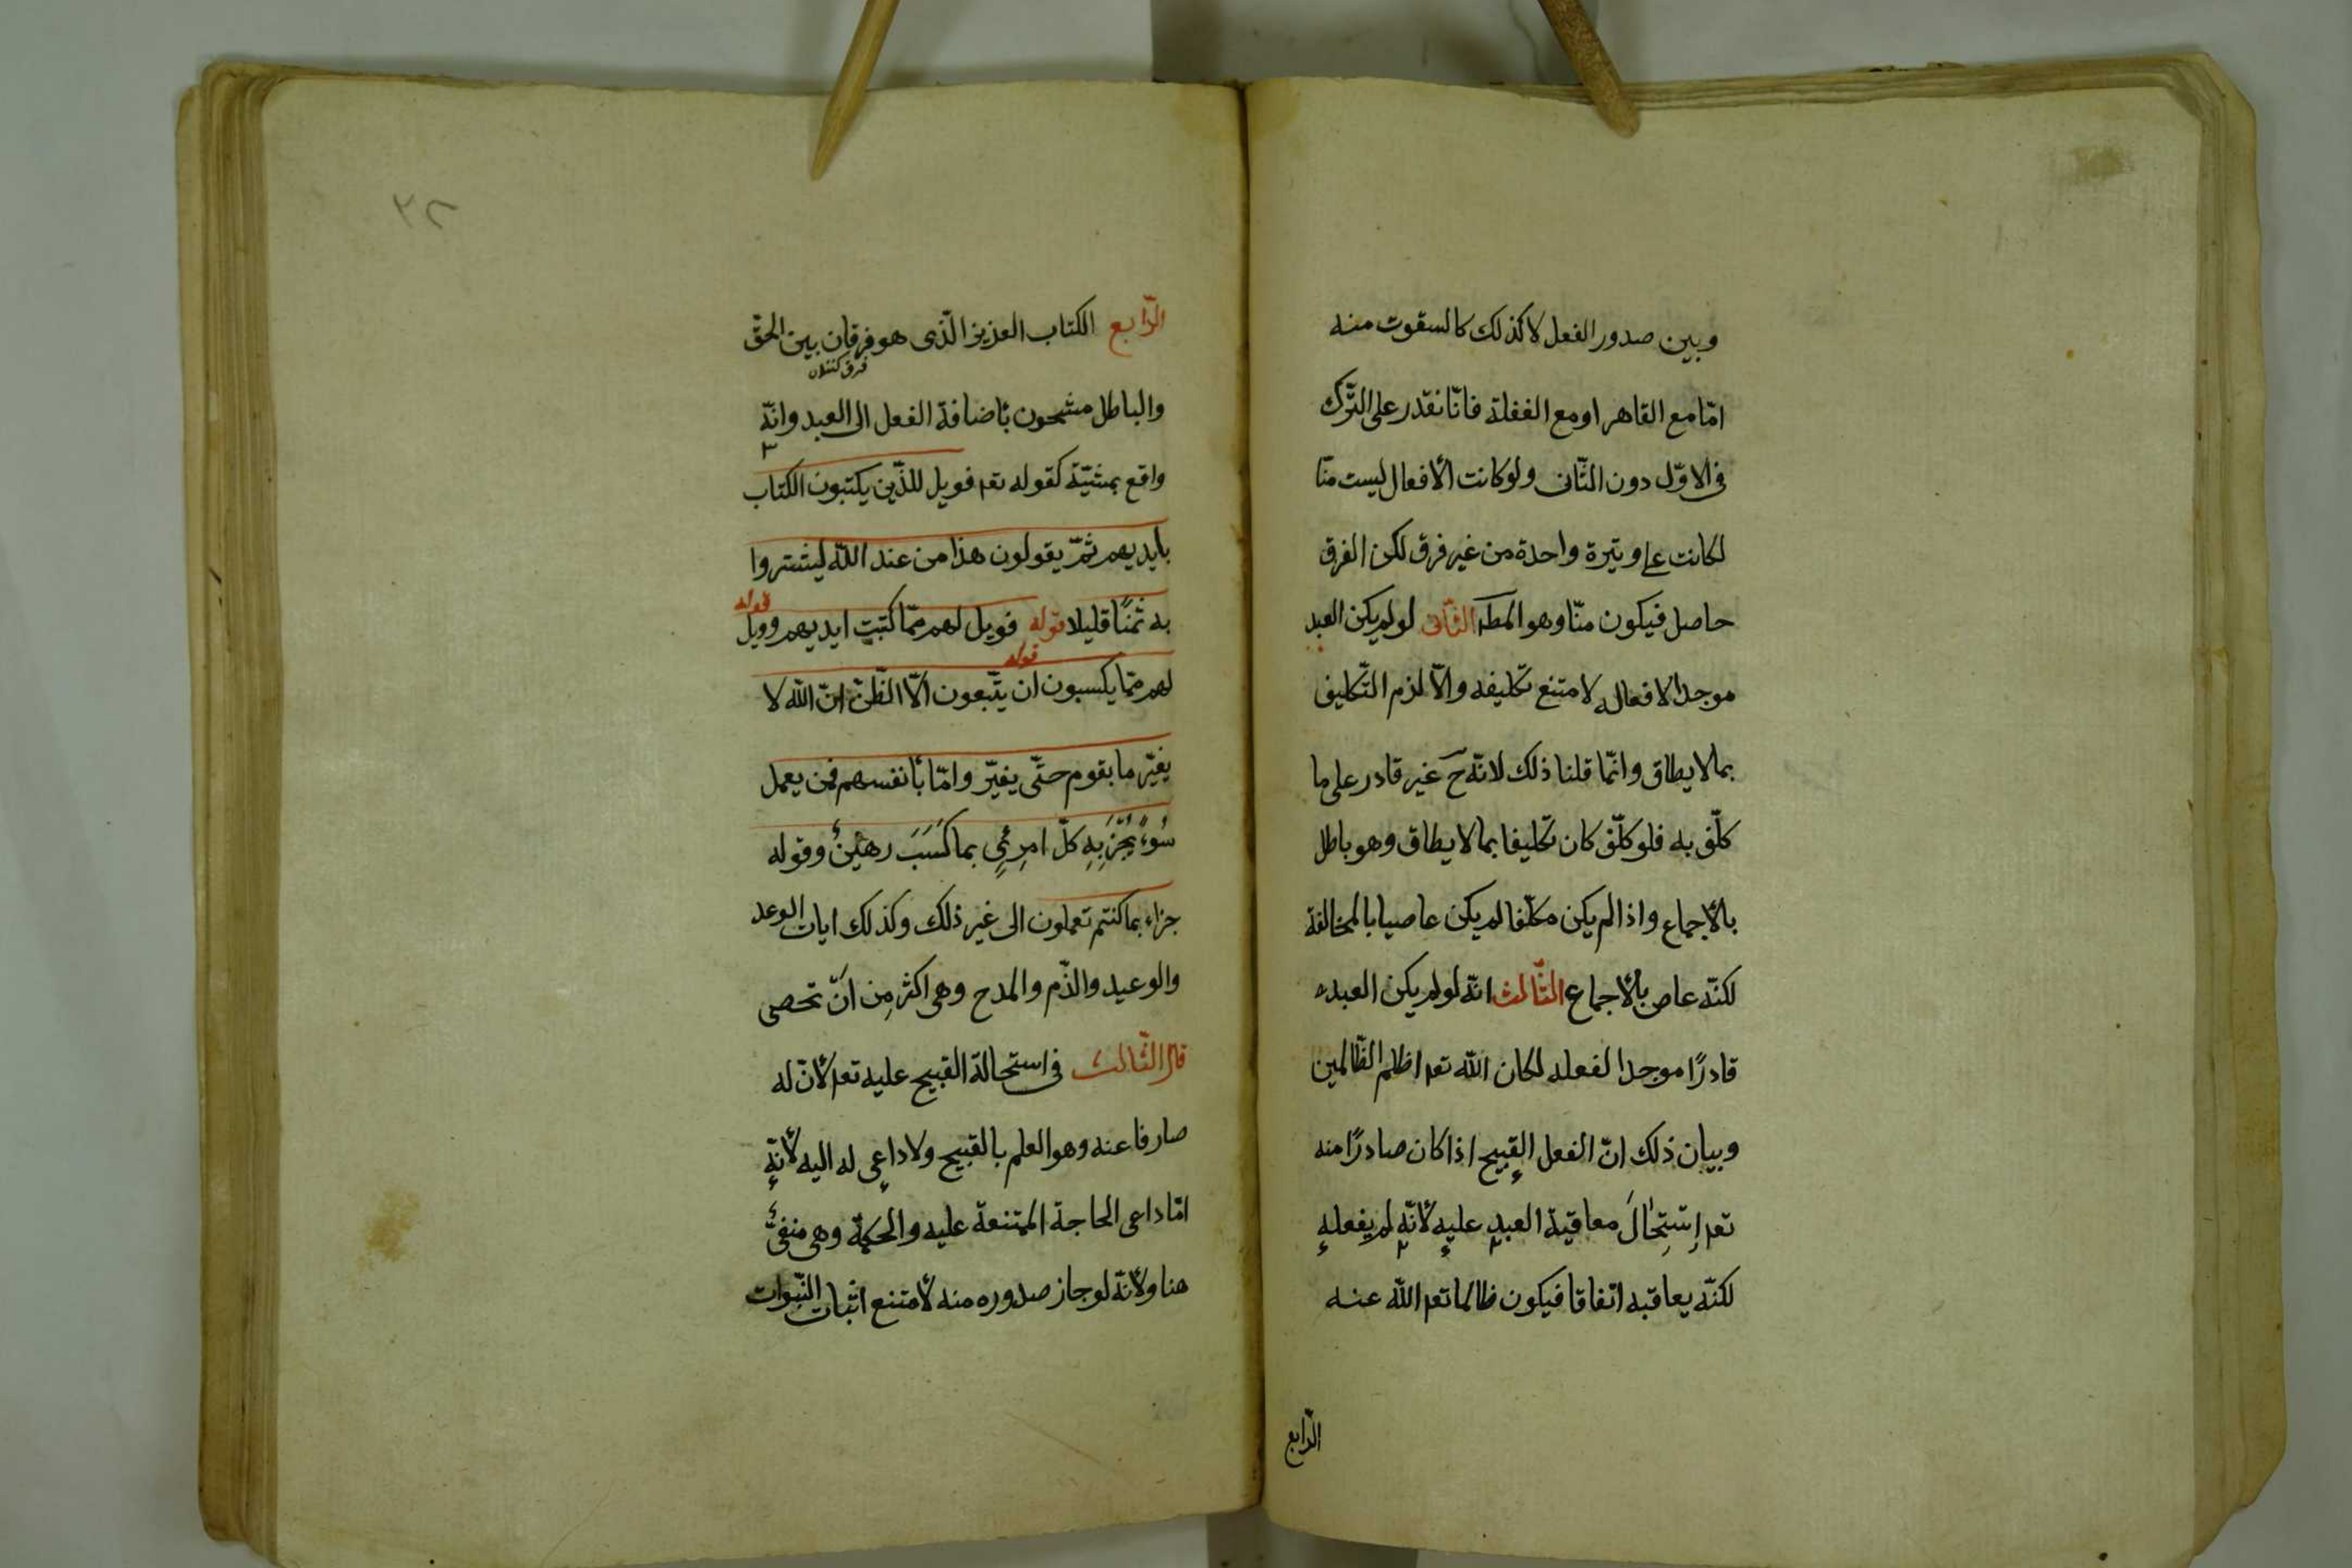 وبين صدور الفعل لا كذلك كالسقوت منه
امّا مع القاهر او مع الغفلة فانّا نقدر على التّرك
فى الاوّل دون الثّانى ولو كانت الأفعال ليست منّا
لكانت على وتيرة واحدة من غير فرق لكن الفرق
حاصل فيكون منّا وهو المطـ الثّانى لو لم يكن العبد
موجدا لافعاله لامتنع تكليفه والّا لزم التّكليف
بما لا يطاق وانّما قلنا ذلك لانّه ح غير قادر على ما
كلّف به فلو كلّف كان تكليفا بما لا يطاق وهو باطل
بالأجماع واذا لم يكن مكلّفا لم يكن عاصيا بالمخالفة
لكنّه عاص بالأجماع الثّالث انّه لو لم يكن العبد
قادرًا موجدا لفعله لكان اللّه تعـ اظلم الظّالمين
وبيان ذلك انّ الفعل القبيح اذا كان صادرًا منه
تعـ اِستِحٰالَ معاقبة العبدِ عليهِ لأنّهِ لم يفعلهِ
لكنّه يعاقبه اتّفاقا فيكون ظالما تعـ اللّه عنه
الرّابع
٣٢
الرّابع الكتاب العزيز الّذى هو فرقان بين الحقّ
فرق كننده
والباطل مشحون بأضافة الفعل الى العبد وانّه
واقع بمشيّة كقوله تعـ فويل للّذين يكتبون الكتاب
بايديهم ثمّ يقولون هذا من عند اللّه ليشتروا
به ثمنًا قليلا قوله فويل لهم ممّا كتبت ايديهم وويل
قوله
لهم ممّا يكسبون ان يتّبعون الّا الظّنّ انّ اللّه لا
قوله
يغيّر ما بقوم حتّى يغيّر وامّا بأنفسهم فمن يعمل
سُوءً يُجْزَ بِهِ كلّ امرِئٍ بما كَسَبَ رهينٌ وقوله
جزاء بما كنتم تعملون الى غير ذلك وكذلك ايات الوعد
والوعيد والذّم والمدح وهى اكثر مِن انّ تحصى
قال الثّالث فى استحالة القبيح عليه تعـ لأنّ له
صارفا عنه وهو العلم بالقبيح ولا داعى له اليه لأنّهِ
امّا داعى الحاجة الممتنعة عليه والحكمة وهى منفىٌّ
هنا ولأنّه لو جاز صدوره منه لأمتنع اثبات النّبوات